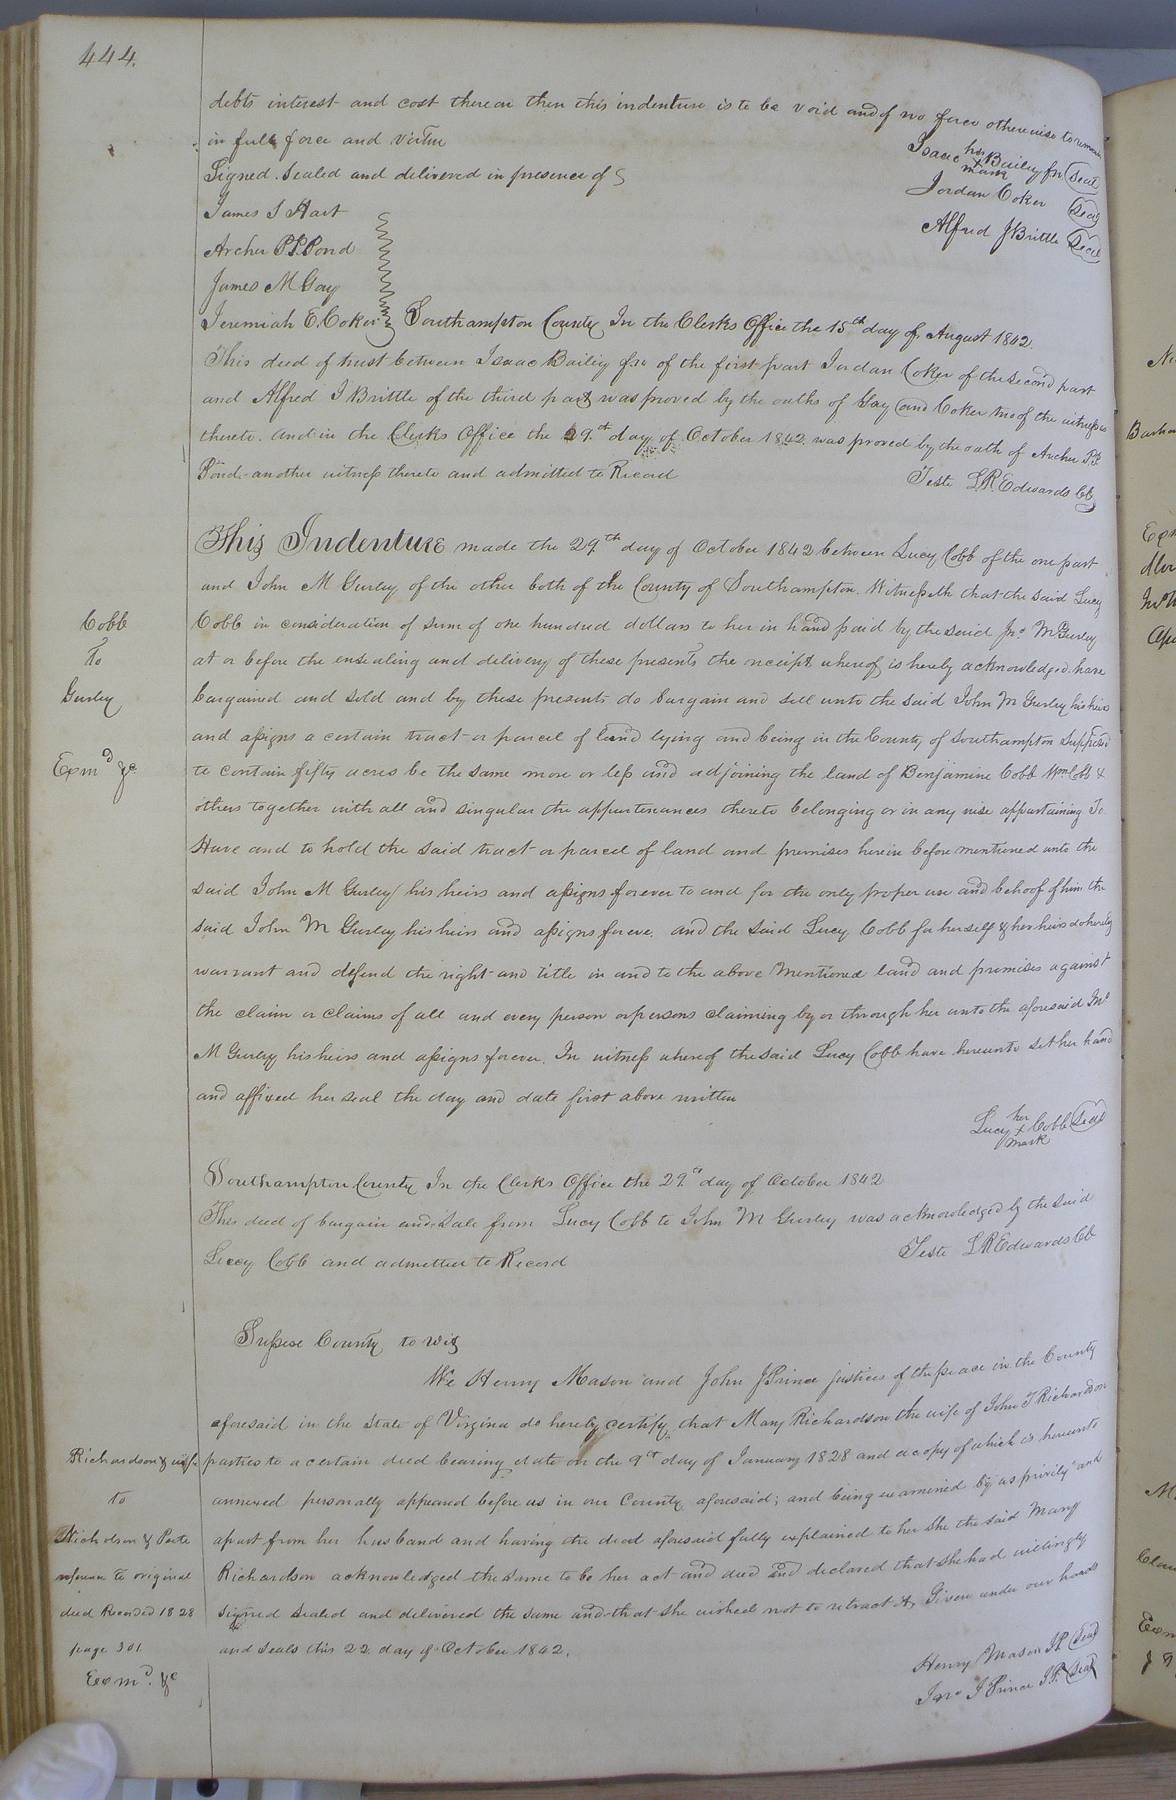 444.
debts interest and cost thereon then this indenture is to be void and of no force otherwise to remain
in full force and virtue
Signed Sealed and delivered in presence of
Isaac his x mark Bailey Jnr (Seal)
Jordan Coker (Seal)
Alfred J Brittle (Seal)
James S Hart
Archer P.S. Pond
James M Gay
Jeremiah E. Coker
Southampton County In the Clerks Office the 15th day of August 1842.
This deed of trust between Isaac Bailey Jnr of the first part Jordan Coker of the second part
and Alfred J Brittle of the third part was proved by the oaths of Gay and Coker two of the witnesses
thereto. and in the Clerks Office the 29th day of October 1842 was proved by the oath of Archer P.S.
Pond another witness thereto and admitted to Record
Teste L R. Edwards Cl
This Indenture made the 29th day of October 1842 between Lucy Cobb of the one part
and John M Gurley of the other both of the County of Southampton. Witnesseth that the said Lucy
Cobb in consideration of sum of one hundred dollars to her in hand paid by the said Jno M Gurley
at or before the ensealing and delivery of these presents the receipt whereof is hereby acknowledged. have
bargained and sold and by these presents do bargain and sell unto the said John M Gurley his heirs
and assigns a certain tract or parcel of land lying and being in the County of Southampton supposed
to contain fifty acres be the same more or less and adjoining the land of Benjamine Cobb Wm Cobb &
others together with all and singular the appurtenances thereto belonging or in any wise appurtaining To
Have and to hold the said tract or parcel of land and premises herein before mentioned unto the
said John M Gurley his heirs and assigns forever to and for the only proper use and behoof of him the
said John M Gurley his heirs and assigns foreve. and the said Lucy Cobb for herself & her heirs do hereby
warrant and defend the right and title in and to the above mentioned land and premises against
the claim or claims of all and every person or persons claiming by or through her unto the aforesaid Jno
M Gurley his heirs and assigns forever. In witness whereof the said Lucy Cobb have hereunto set her hand
and affixed her seal the day and date first above written
Lucy her x mark Cobb (Seal)
Cobb
To
Gurley
Exmd &c
Southampton County In the Clerks Office the 29th day of October 1842
This deed of bargain and sale from Lucy Cobb to John M Gurley was acknowledged by the said
Lucy Cobb and admitted to Record
Teste L R Edwards Cl
Sussex County to wit
We Henry Mason and John J Prince justices of the peace in the County
aforesaid in the State of Virgina do hereby certify that Mary Richardson the wife of John T Richardson
parties to a certain deed bearing date on the 9th day of January 1828 and a copy of which is hereunto
annexed personally appeared before us in our County aforesaid; and being examined by us privily and
apart from her husband and having the deed aforesaid fully explained to her she the said Mary
Richardson acknowledged the same to be her act and deed and declared that she had willingly
signed sealed and delivered the same and that she wished not to retract it, Given under our hands
and seals this 22 day of October 1842.
Henry Mason J.P. (Seal)
Jno J Prince J.P. (Seal)
Richardson & wife
to
reference to original
deed Recorded 1828
page 301
Exmd. &c